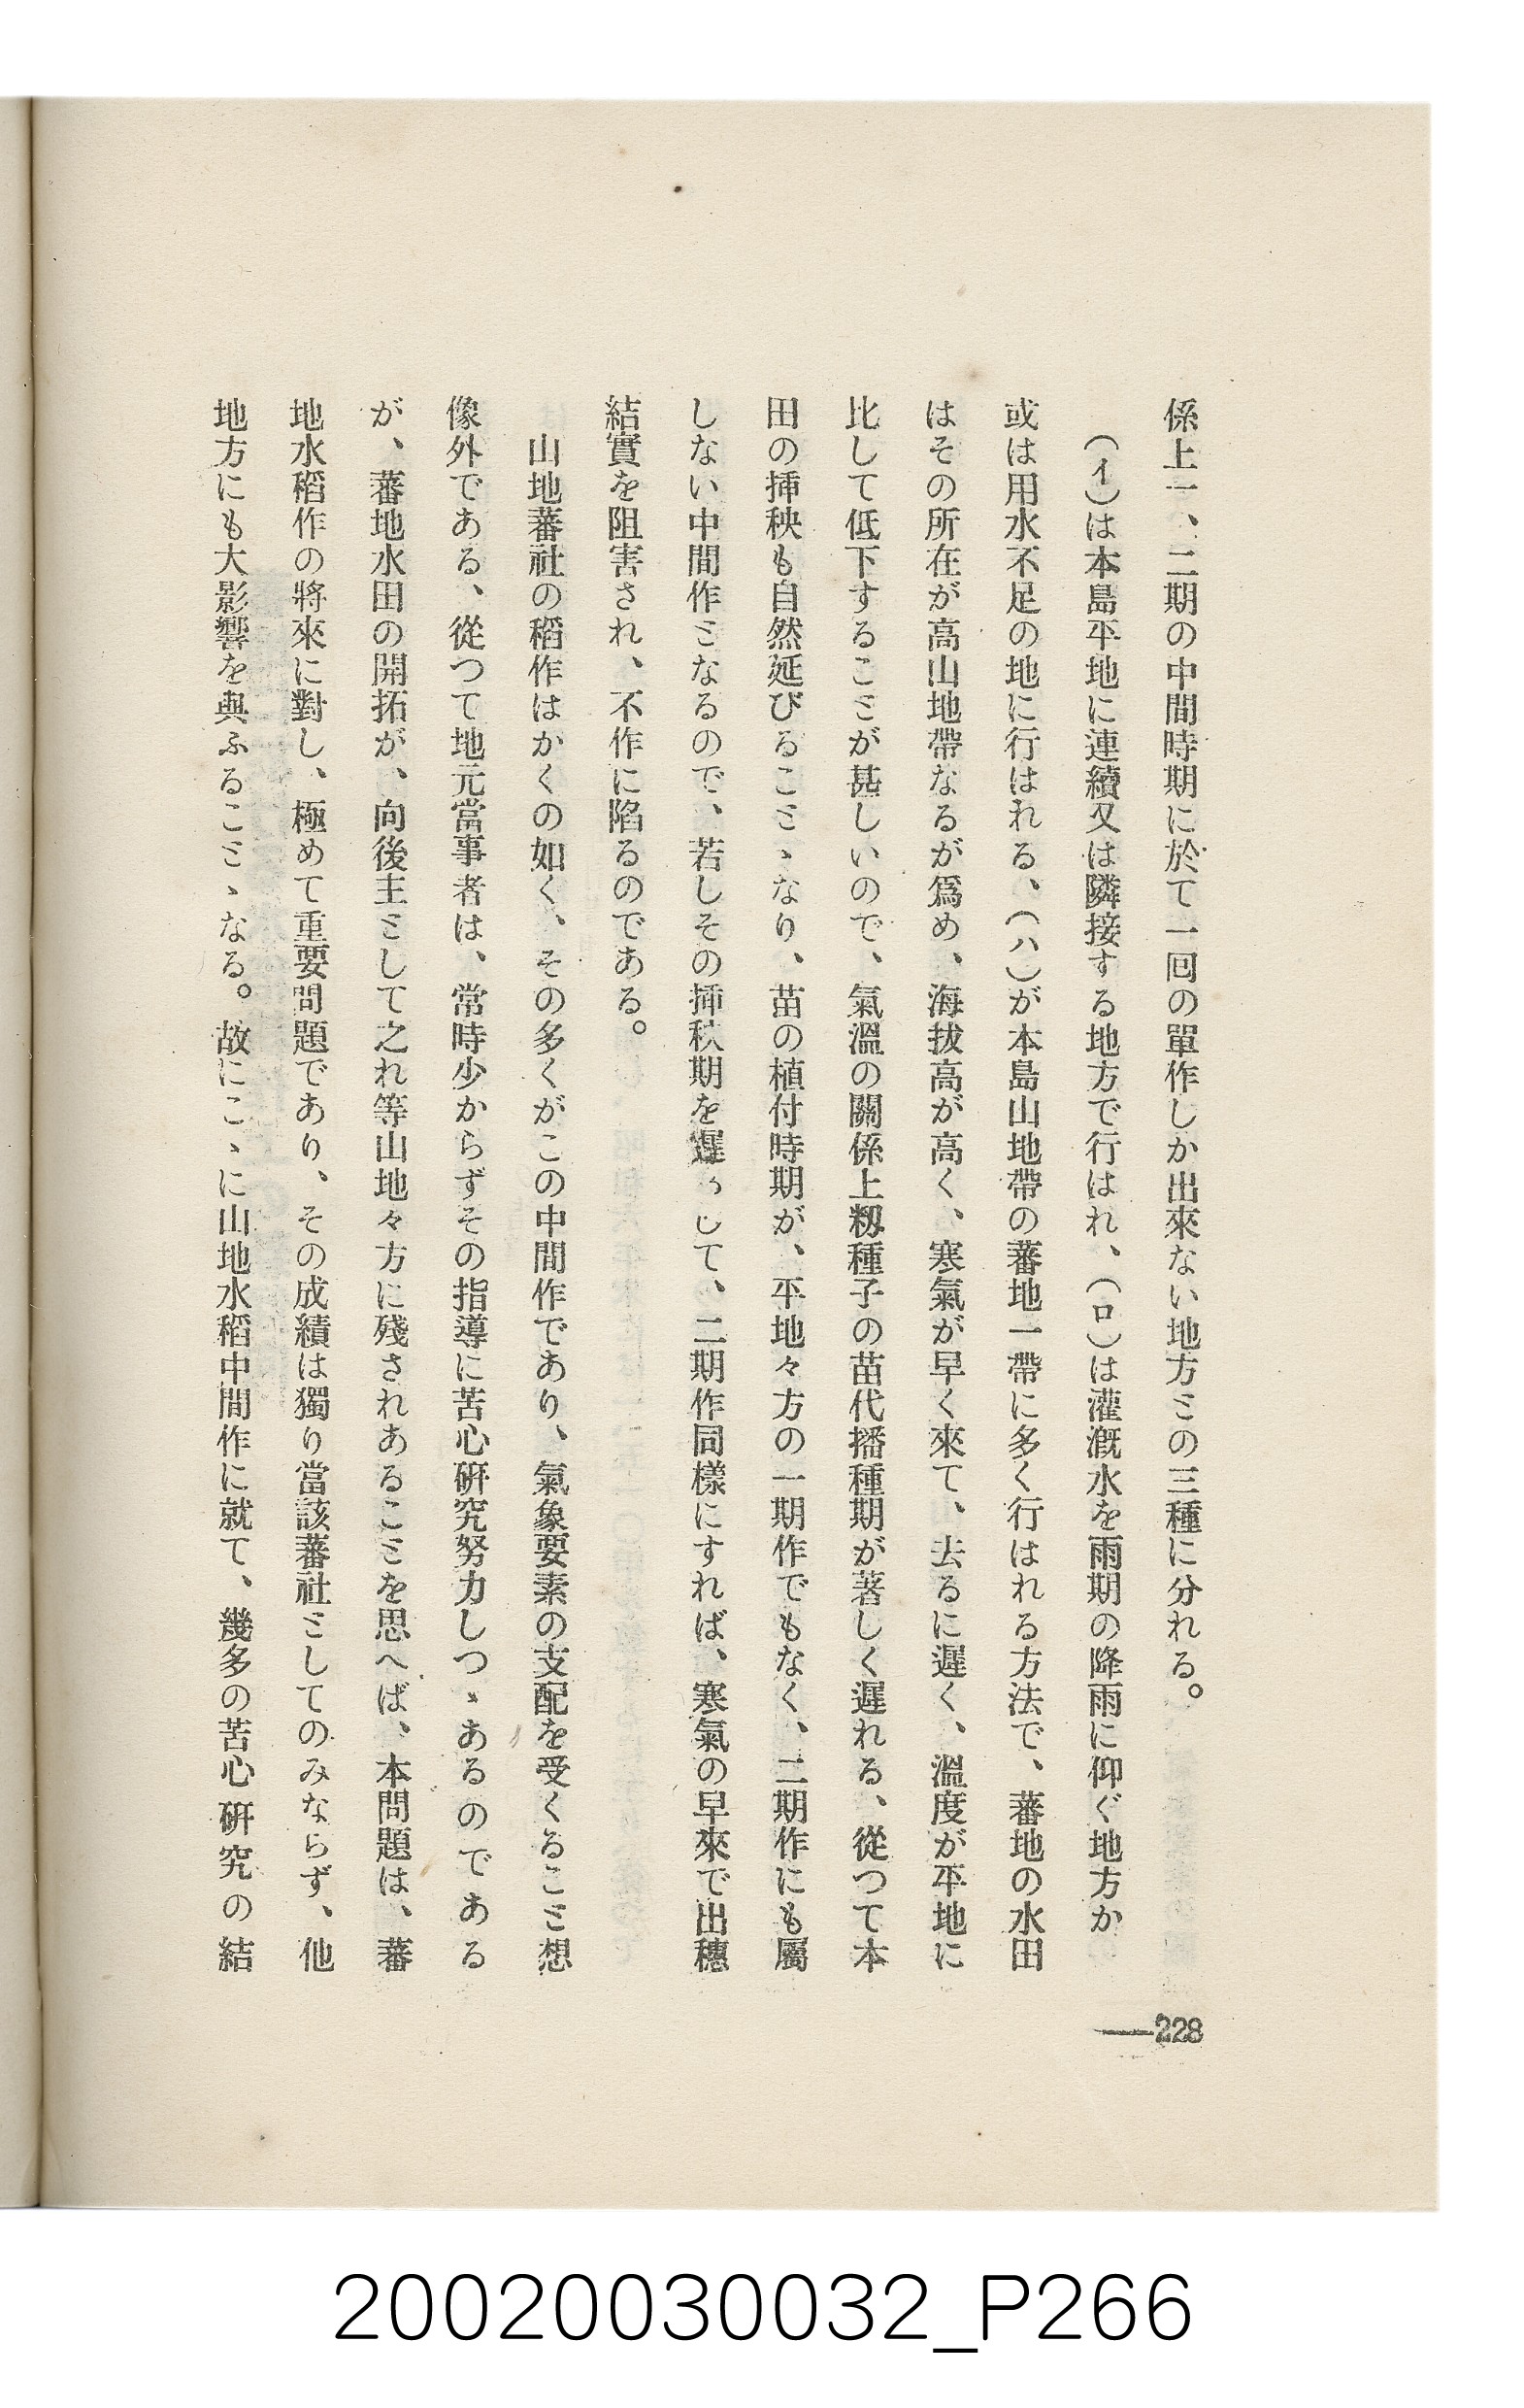 係上一、二期の中間時期に於て一回の單作しか出來ない地方ミの三種に分れる。
(イ)は本島平地に連續又は隣接する地方で行はれ、(ロ)は灌漑水を雨期の降雨に仰ぐ地方か
或は用水不足の地に行はれる、(ハ)が本島山地帶の蕃地一帶に多く行はれる方法で、蕃地の水田
はその所在が高山地帶なるが爲め、海拔高が高く、寒氣が早く來て、去るに遲く、溫度が平地に
比して低下するこミが甚しいので、氣溫の關係上籾種子の苗代播種期が著しく遲れる、從つて本
田の挿秧も自然延びるこミヽなり、苗の植付時期が、平地々方の一期作でもなく、二期作にも屬
しない中間作ミなるので、若しその挿秧期を遲らして、二期作同樣にすれば、寒氣の早來で出穗
結實を阻害され、不作に陷るのである。
山地蕃社の稻作はかくの如く、その多くがこの中間作であり、氣象要素の支配を受くるこミ想
像外である、從つて地元當事者は、常時少からずその指導に苦心硏究努力しつヽあるのである
が、蕃地水田の開拓が、向後主ミして之れ等山地々方に殘されあるこミを思へば、本問題は、蕃
地水稻作の將來に對し、極めて重要問題であり、その成績は獨り當該蕃社ミしてのみならず、他
地方にも大影響を與ふるこミヽなる。故にこヽに山地水稻中間作に就て、幾多の苦心硏究の結
—228
20020030032_P266